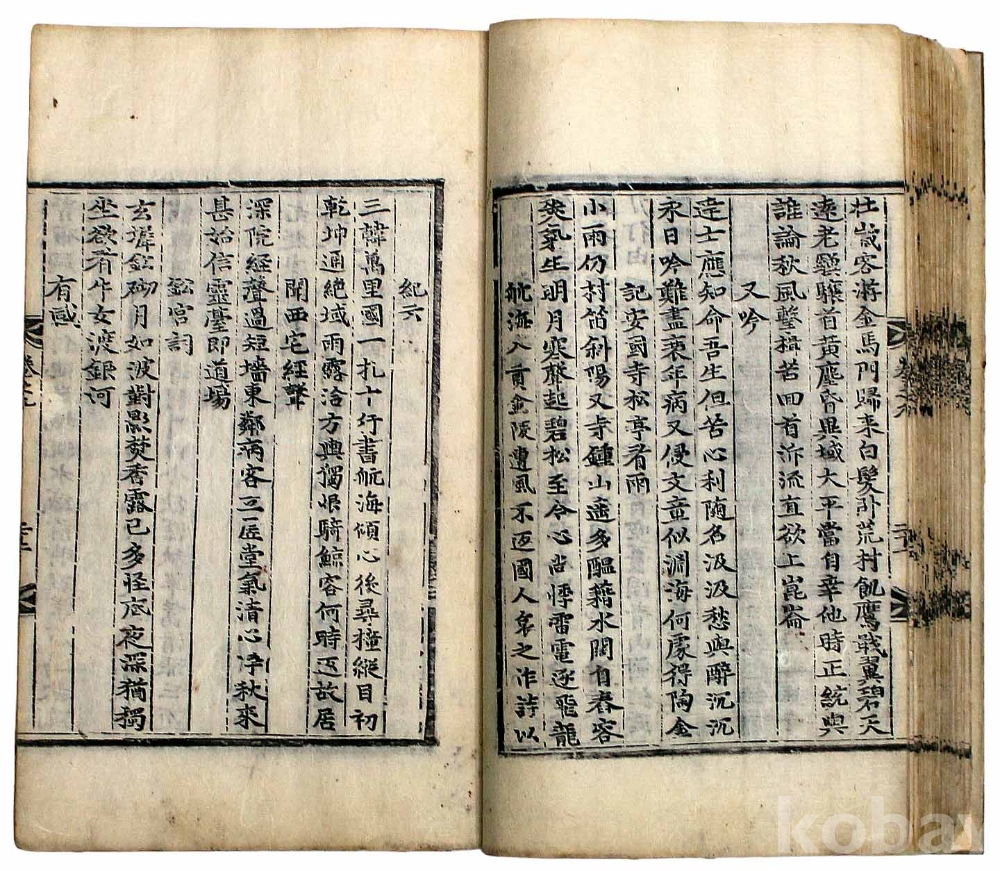 壮歲客游金馬門歸来白髮卧荒村飢鷹戢翼碧天
遠老驥驤首黄塵昏異域大平當自幸他時正統與
誰論秋風鑿楫苦回首泝流直欲上崑崙
又吟
達士應知命吾生但苦心利随名汲汲愁與醉沉沉
永日吟難盡衰年病又侵文章似淵海何處得陶金
記安國寺松亭看雨
小雨仍村笛斜陽又寺鍾山遥多醖藉水闊自舂容
爽氣生明月寒聲起碧松至今心尚悸雷電逐飛龍
航海入貢金陵遭風不返國人哀之作詩以
紀云
三韓萬里國一札十行書航海傾心後尋橦縱目初
乾坤通絶域雨露洽方輿獨恨騎鯨客何時返故居
聞西宅經聲
深院經聲過短墻東鄰病客立匠堂氣清心淨秋來
甚始信靈臺即道場
宮詞
玄墀 砌月如波對 焚香露已多怪底夜深猶獨
坐欲看牛女渡銀河
有感
卷之
二十
kobay